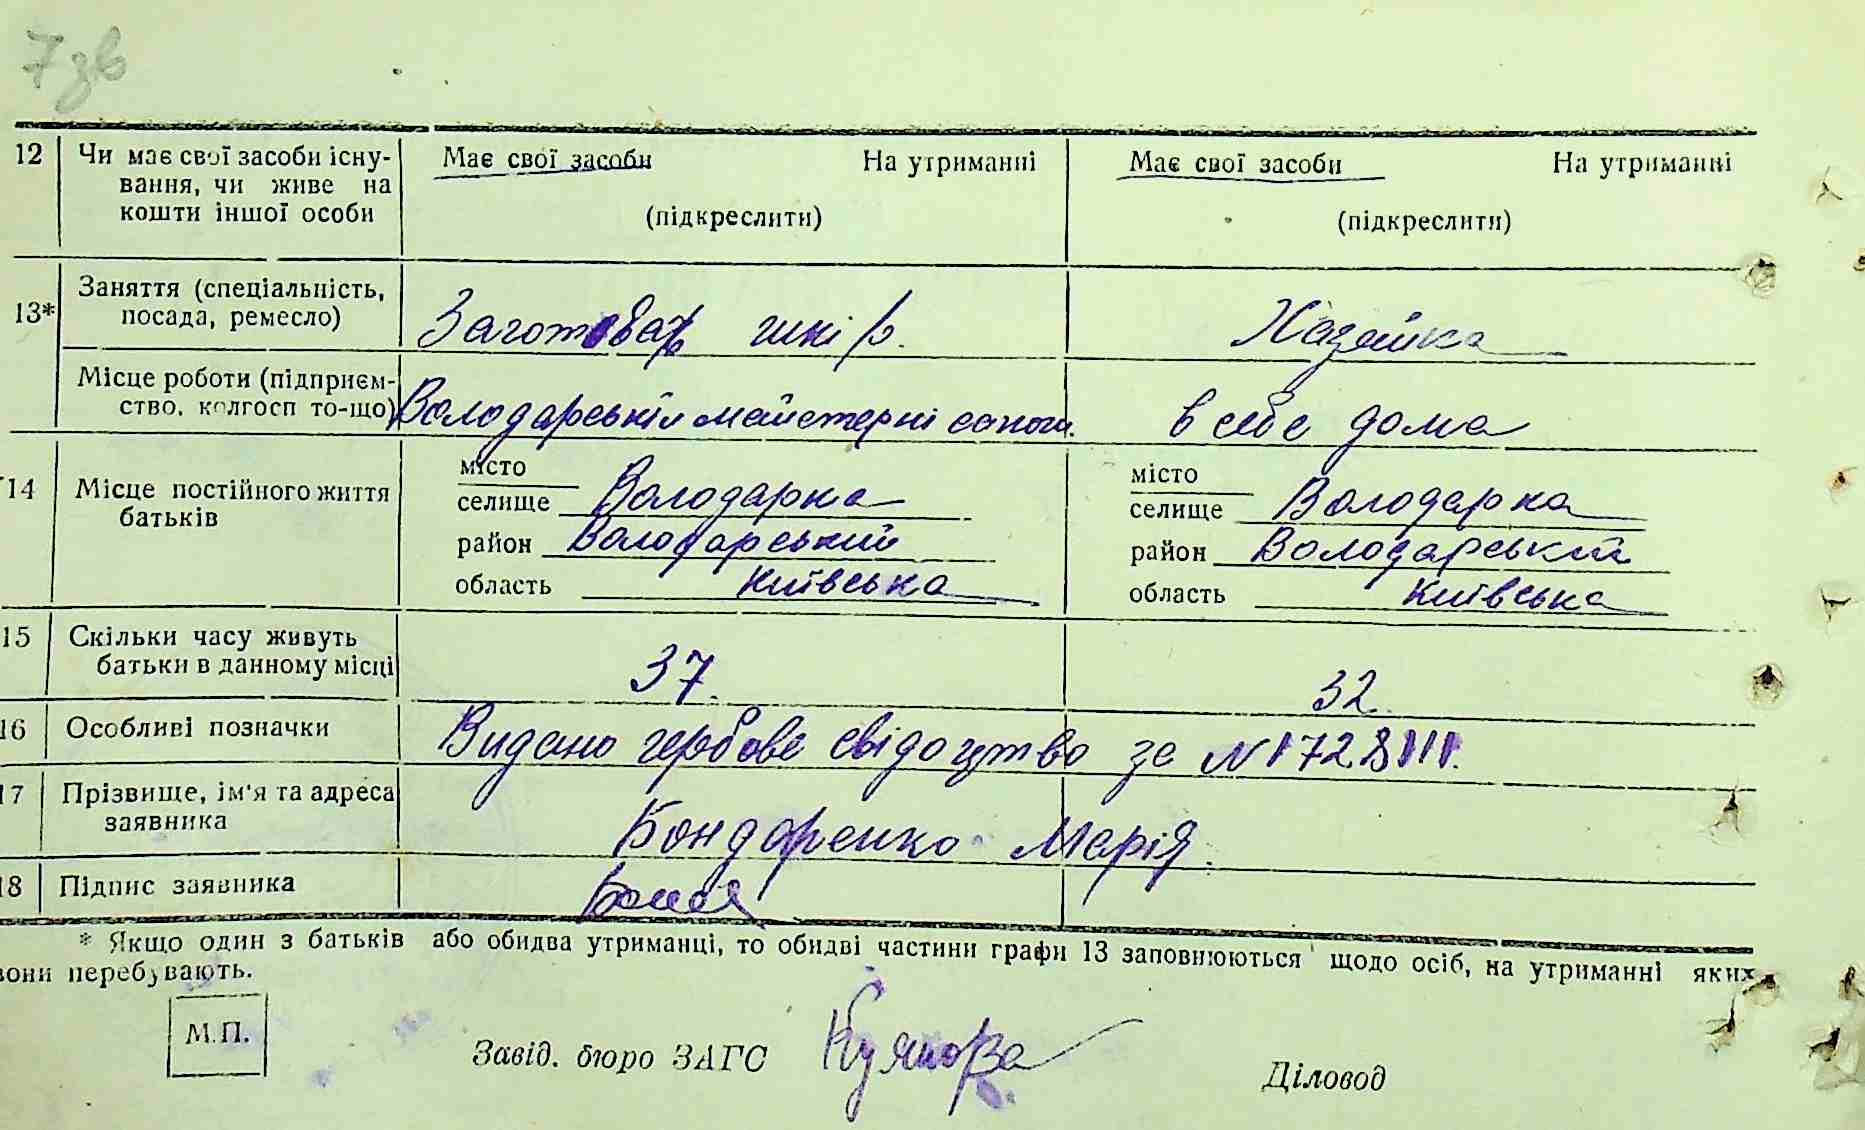 7зв
12 Чи має свої засоби існу- Має свої засоби На утриманні Має свої засоби На утриманні
вання, чи живе на
кошти іншої особи (підкреслити) (підкреслити)
13* Заняття (спеціальність,
посада, ремесло) Заготовар шкір. Хазяйка
Місце роботи (підприєм-
ство, колгосп то-що) Володарській майстерні сапож. в себе дома
14 Місце постійного життя
батьків
місто місто
селище Володарка селище Володарка
район Володарський район Володарський
область Київська область Київська
15 Скільки часу живуть
батьки в данному місці 37. 32.
16 Особливі позначки Видано гербове свідоцтво за №1728111.
17 Прізвище, ім'я та адреса
заявника Бондаренко Марія.
18 Підпис заявника
* Якщо один з батьків або обидва утриманці, то обидві частини графи 13 заповнюються щодо осіб, на утриманні яких
вони перебувають.
М.П.
Завід. бюро ЗАГС Діловод